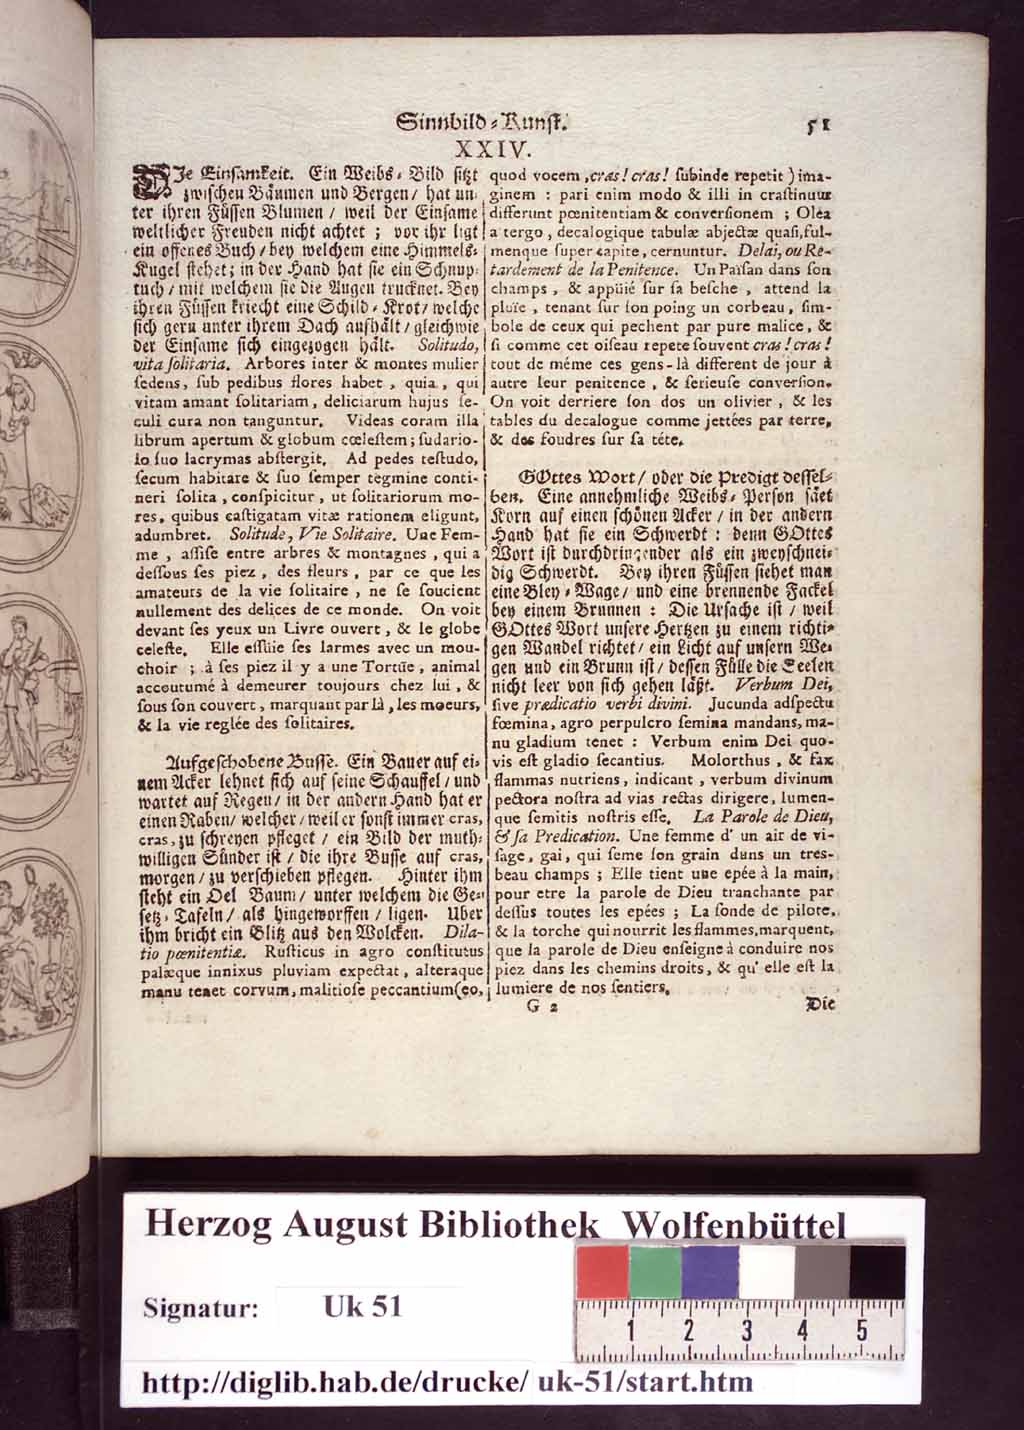 Sinnbild⸗Kunst. 51
XXIV.
DJe Einsamkeit. Ein Weibs⸗Bild sitzt
zwischen Bäumen und Bergen/ hat un⸗
ter ihren Füssen Blumen/ weil der Einsame
weltlicher Freuden nicht achtet; vor ihr ligt
ein offenes Buch/ bey welchem eine Himmels⸗
Kugel stehet; in der Hand hat sie ein Schnup⸗
tuch/ mit welchem sie die Augen trucknet. Bey
ihren Füssen kriecht eine Schild⸗Krot/ welche
sich gern unter ihrem Dach aufhält/ gleichwie
der Einsame sich eingezogen hält. Solitudo,
vita ſolitaria. Arbores inter & montes mulier
ſedens, ſub pedibus flores habet, quia, qui
vitam amant ſolitariam, deliciarum hujus ſe-
culi cura non tanguntur. Videas coram illa
librum apertum & globum cœleſtem; ſudario-
lo ſuo lacrymas abſtergit. Ad pedes teſtudo,
ſecum habitare & ſuo ſemper tegmine conti-
neri ſolita, conſpicitur, ut ſolitariorum mo-
res, quibus caſtigatam vitæ rationem eligunt,
adumbret. Solitude, Vie Solitaire. Une Fem-
me, aſſiſe entre arbres & montagnes, qui a
deſſous ſes piez, des fleurs, par ce que les
amateurs de la vie ſolitaire, ne ſe ſoucient
nullement des delices de ce monde. On voit
devant ſes yeux un Livre ouvert, & le globe
celeſte. Elle eſſüie ſes larmes avec un mou-
choir; à ſes piez il y a une Tortüe, animal
accoutumé à demeurer toujours chez lui, &
ſous ſon couvert, marquant par là, les moeurs,
& la vie reglée des ſolitaires.
Aufgeschobene Busse. Ein Bauer auf ei⸗
nem Acker lehnet sich auf seine Schauffel/ und
wartet auf Regen/ in der andern Hand hat er
einen Raben/ welcher/ weil er sonst immer cras,
cras, zu schreyen pfleget/ ein Bild der muth⸗
willigen Sünder ist/ die ihre Busse auf cras,
morgen/ zu verschieben pflegen. Hinter ihm
steht ein Oel Baum/ unter welchem die Ge⸗
setz⸗Tafeln/ als hingeworffen/ ligen. Uber
ihm bricht ein Blitz aus den Wolcken. Dila-
tio pœnitentiæ. Ruſticus in agro conſtitutus
palæque innixus pluviam expectat, alteraque
manu tenet corvum, malitioſe peccantium (eo,
quod vocem, cras! cras! ſubinde repetit) ima-
ginem: pari enim modo & illi in craſtinum
differunt pœnitentiam & converſionem; Olea
a tergo, decalogique tabulæ abjectæ quaſi, ful-
menque ſuper capite, cernuntur. Delai, ou Re-
tardement de la Penitence. Un Païſan dans ſon
champs, & appüié ſur ſa beſche, attend la
pluïe, tenant ſur ſon poing un corbeau, ſim-
bole de ceux qui pechent par pure malice, &
ſi comme cet oiſeau repete ſouvent cras! cras!
tout de méme ces gens-là different de jour à
autre leur penitence, & ſerieuſe converſion.
On voit derriere ſon dos un olivier, & les
tables du decalogue comme jettées par terre,
& des foudres ſur ſa téte.
GOttes Wort/ oder die Predigt dessel⸗
ben. Eine annehmliche Weibs⸗Person säet
Korn auf einen schönen Acker/ in der andern
Hand hat sie ein Schwerdt: denn GOttes
Wort ist durchdringender als ein zweyschnei⸗
dig Schwerdt. Bey ihren Füssen siehet man
eine Bley⸗Wage/ und eine brennende Fackel
bey einem Brunnen: Die Ursache ist/ weil
GOttes Wort unsere Hertzen zu einem richti⸗
gen Wandel richtet/ ein Licht auf unsern We⸗
gen und ein Brunn ist/ dessen Fülle die Seelen
nicht leer von sich gehen läßt. Verbum Dei,
ſive prædicatio verbi divini. Jucunda adſpectu
fœmina, agro perpulcro ſemina mandans, ma-
nu gladium tenet: Verbum enim Dei quo-
vis eſt gladio ſecantius. Molorthus, & fax
flammas nutriens, indicant, verbum divinum
pectora noſtra ad vias rectas dirigere, lumen-
que ſemitis noſtris eſſe. La Parole de Dieu,
& ſa Predication. Une femme d' un air de vi-
ſage, gai, qui ſeme ſon grain dans un tres-
beau champs; Elle tient une epée à la main,
pour etre la parole de Dieu tranchante par
deſſus toutes les epées; La ſonde de pilote,
& la torche qui nourrit les flammes, marquent,
que la parole de Dieu enſeigne à conduire nos
piez dans les chemins droits, & qu' elle eſt la
lumiere de nos ſentiers.
G 2 Die
Herzog August Bibliothek Wolfenbüttel
Signatur: Uk 51
1 2 3 4 5
http://diglib.hab.de/drucke/ uk-51/start.htm